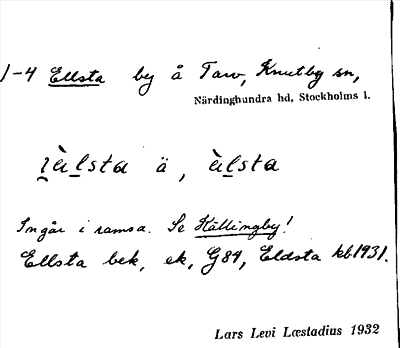 1-4 Ellsta by å Tarv, Knutby sn,
Närdinghundra hd, Stockholms l.
ä, àlsta
Ingår i ramsa. Se Källingby!
Ellsta bek, ek, G84, Eldsta kb1931.
Lars Levi Læstadius 1932